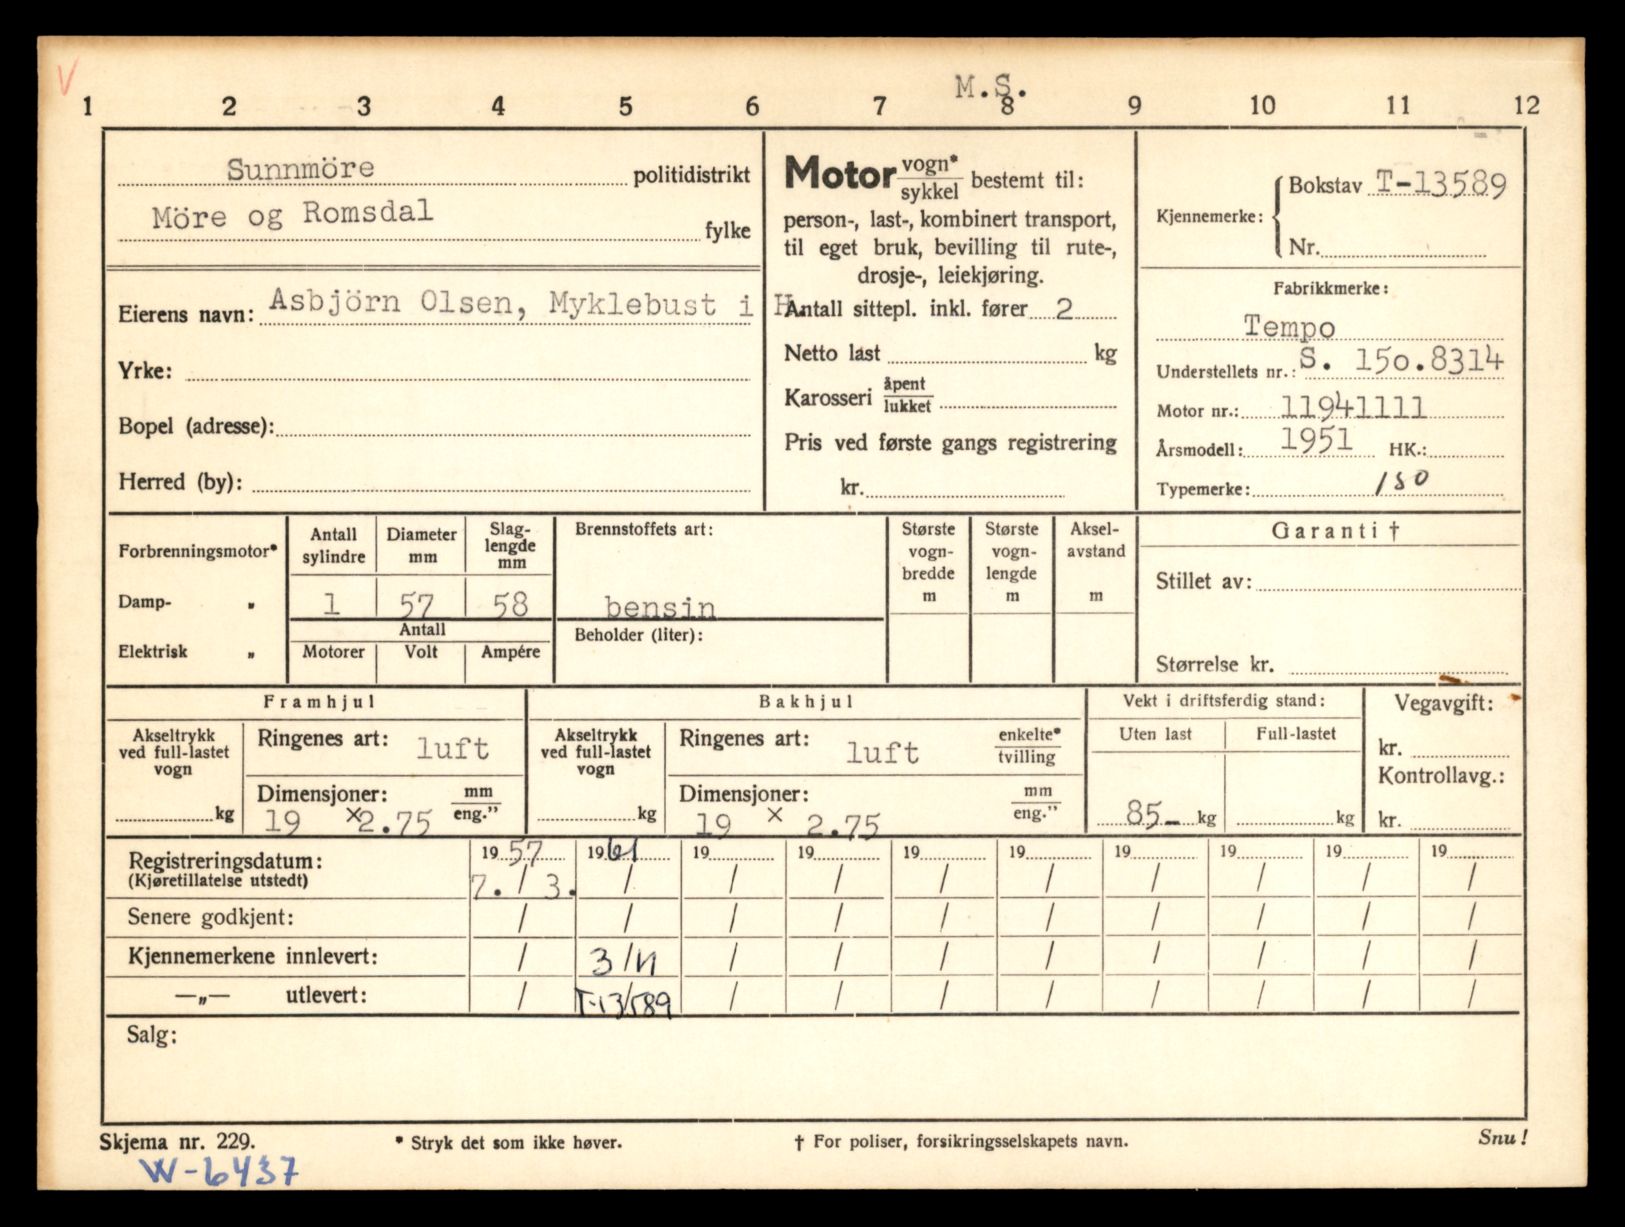 V
M.S.
1 2 3 4 5 6 7 8 9 10 11 12
Sunnmöre politidistrikt
Möre og Romsdal fylke
Eierens navn: Asbjörn Olsen, Myklebust i H.
Yrke:
Bopel (adresse):
Herred (by):
Motor vogn*
sykkel bestemt til:
person-, last-, kombinert transport,
til eget bruk, bevilling til rute-,
drosje-, leiekjøring.
Antall sittepl. inkl. fører 2
Netto last kg
Karosseri åpent
lukket
Pris ved første gangs registrering
kr.
Kjennemerke: Bokstav T-13589
Nr.
Fabrikkmerke:
Tempo
Understellets nr.: S. 150.8314
Motor nr.: 11941111
Årsmodell: 1951 HK.:
Typemerke: 150
Forbrenningsmotor*
Damp- "
Elektrisk "
Antall sylindre
Diameter mm
Slag-
lengde
mm
1 57 58
Antall
Motorer Volt Ampére
Brennstoffets art:
bensin
Beholder (liter):
Største
vogn-
bredde
m
Største
vogn-
lengde
m
Aksel-
avstand
m
Garanti †
Stillet av:
Størrelse kr.
Framhjul
Akseltrykk
ved full-lastet
vogn
kg
Ringenes art: luft
Dimensjoner: mm
19 x 2.75 eng."
Bakhjul
Akseltrykk
ved full-lastet
vogn
kg
Ringenes art: luft enkelte*
tvilling
Dimensjoner: mm
19 x 2.75 eng."
Vekt i driftsferdig stand:
Uten last Full-lastet
85- kg kg
Vegavgift:
kr.
Kontrollavg.:
kr.
Registreringsdatum: 19 57 19 61 19 19 19 19 19 19 19 19
(Kjøretillatelse utstedt) 7. / 3. / / / / / / / / /
Senere godkjent: / / / / / / / / / /
Kjennemerkene innlevert: / 3/11 / / / / / / / /
—„— utlevert: / T-13589 / / / / / / / /
Salg:
Skjema nr. 229. * Stryk det som ikke høver. † For poliser, forsikringsselskapets navn. Snu!
W-6437